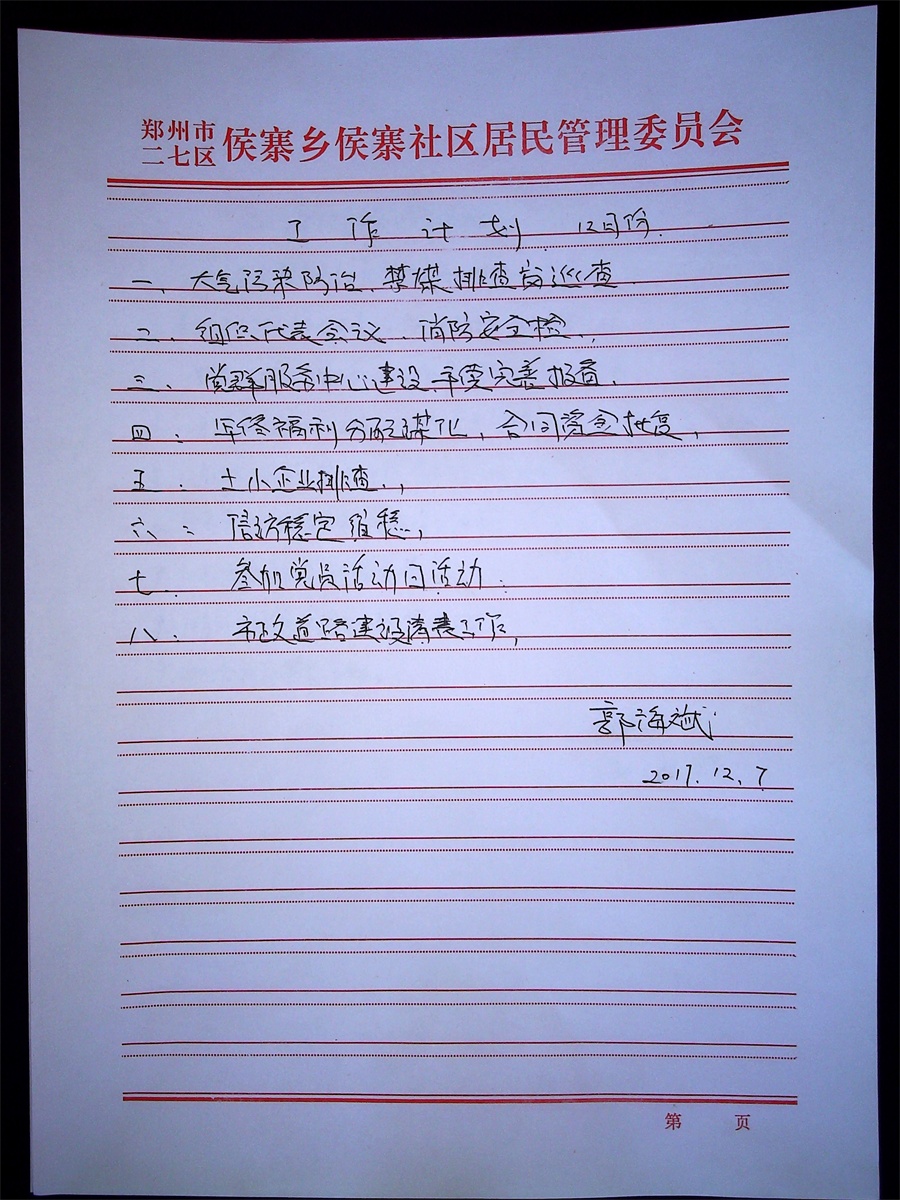 郑州市
二七区 侯寨乡侯寨社区居民管理委员会
工作计划 12月份.
一、大气污染防治、禁煤排查宣巡查.
二、组织代表会议、消防安全检、,
三、党群服务中心建设,手要完善报备.
四:年终福利分配谋化,合同资金批复,
五.土小企业排查.,
六:信访稳定维稳,
七.参加党员活动日活动.
八:市政道路建设清表工作,
郭海斌
2017.12.7
第 页